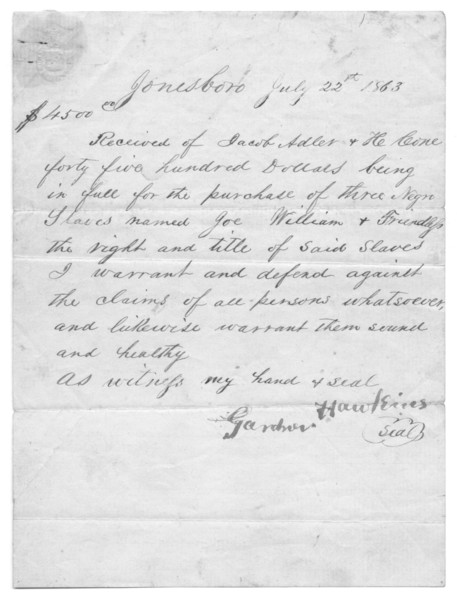 Jonesboro July 22nd 1863
$4500 00
Received of Jacob Adler & H Cone
forty five hundred Dollars being
in full for the purchase of three Negro
Slaves named Joe William &
the right and title of Said Slaves
I warrant and defend against
the claims of all persons whatsoever,
and likewise warrant them sound
and healthy
As witness my hand & seal
Hawkins
Seal